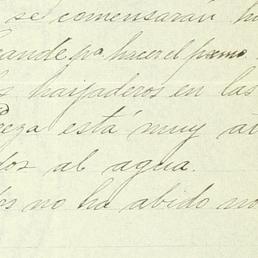 se comensarán h
eande pa. hacer el pxmo.
s haijaderos en las
eza está muy at
dos al agua.
os no ha abido no